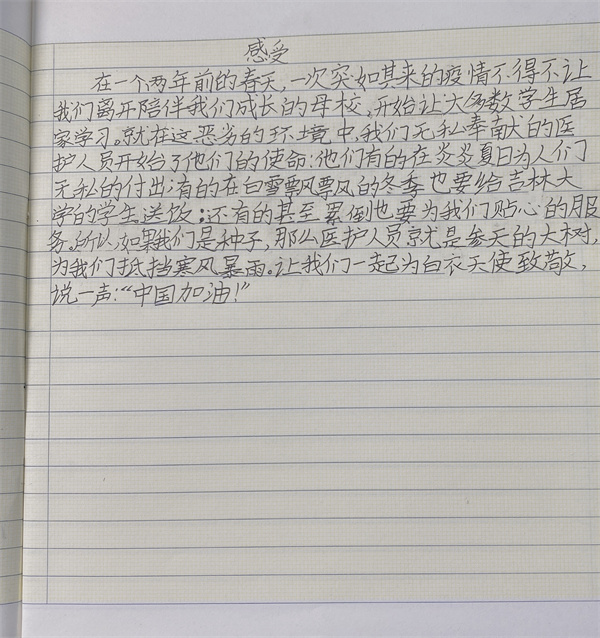 感受
在一个两年前的春天,一次突如其来的疫情不得不让
我们离开陪伴我们成长的母校,开始让大多数学生居
家学习。就在这恶劣的环境中,我们无私奉献的医
护人员开始了他们的使命:他们有的在炎炎夏日为人们
无私的付出;有的在白雪飘飘的冬季也要给吉林大
学的学生送饭;还有的甚至累倒也要为我们贴心的服
务。所以,如果我们是种子,那么医护人员就是参天的大树,
为我们抵挡寒风暴雨。让我们一起为白衣天使致敬,
说一声:“中国加油!”